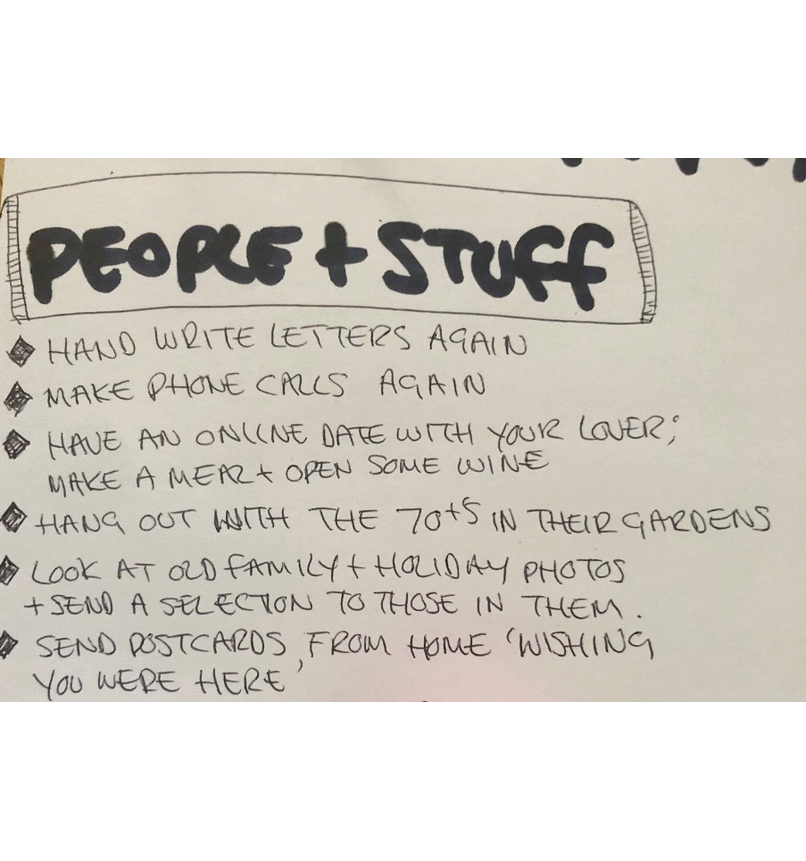 PEOPLE + STUFF
HAND WRITE LETTERS AGAIN
MAKE PHONE CALLS AGAIN
HAVE AN ONLINE DATE WITH YOUR LOVER;
MAKE A MEAL + OPEN SOME WINE
HANG OUT WITH THE 70+S IN THEIR GARDENS
LOOK AT OLD FAMILY + HOLIDAY PHOTOS
+ SEND A SELECTION TO THOSE IN THEM.
SEND POSTCARDS, FROM HOME 'WISHING
YOU WERE HERE'